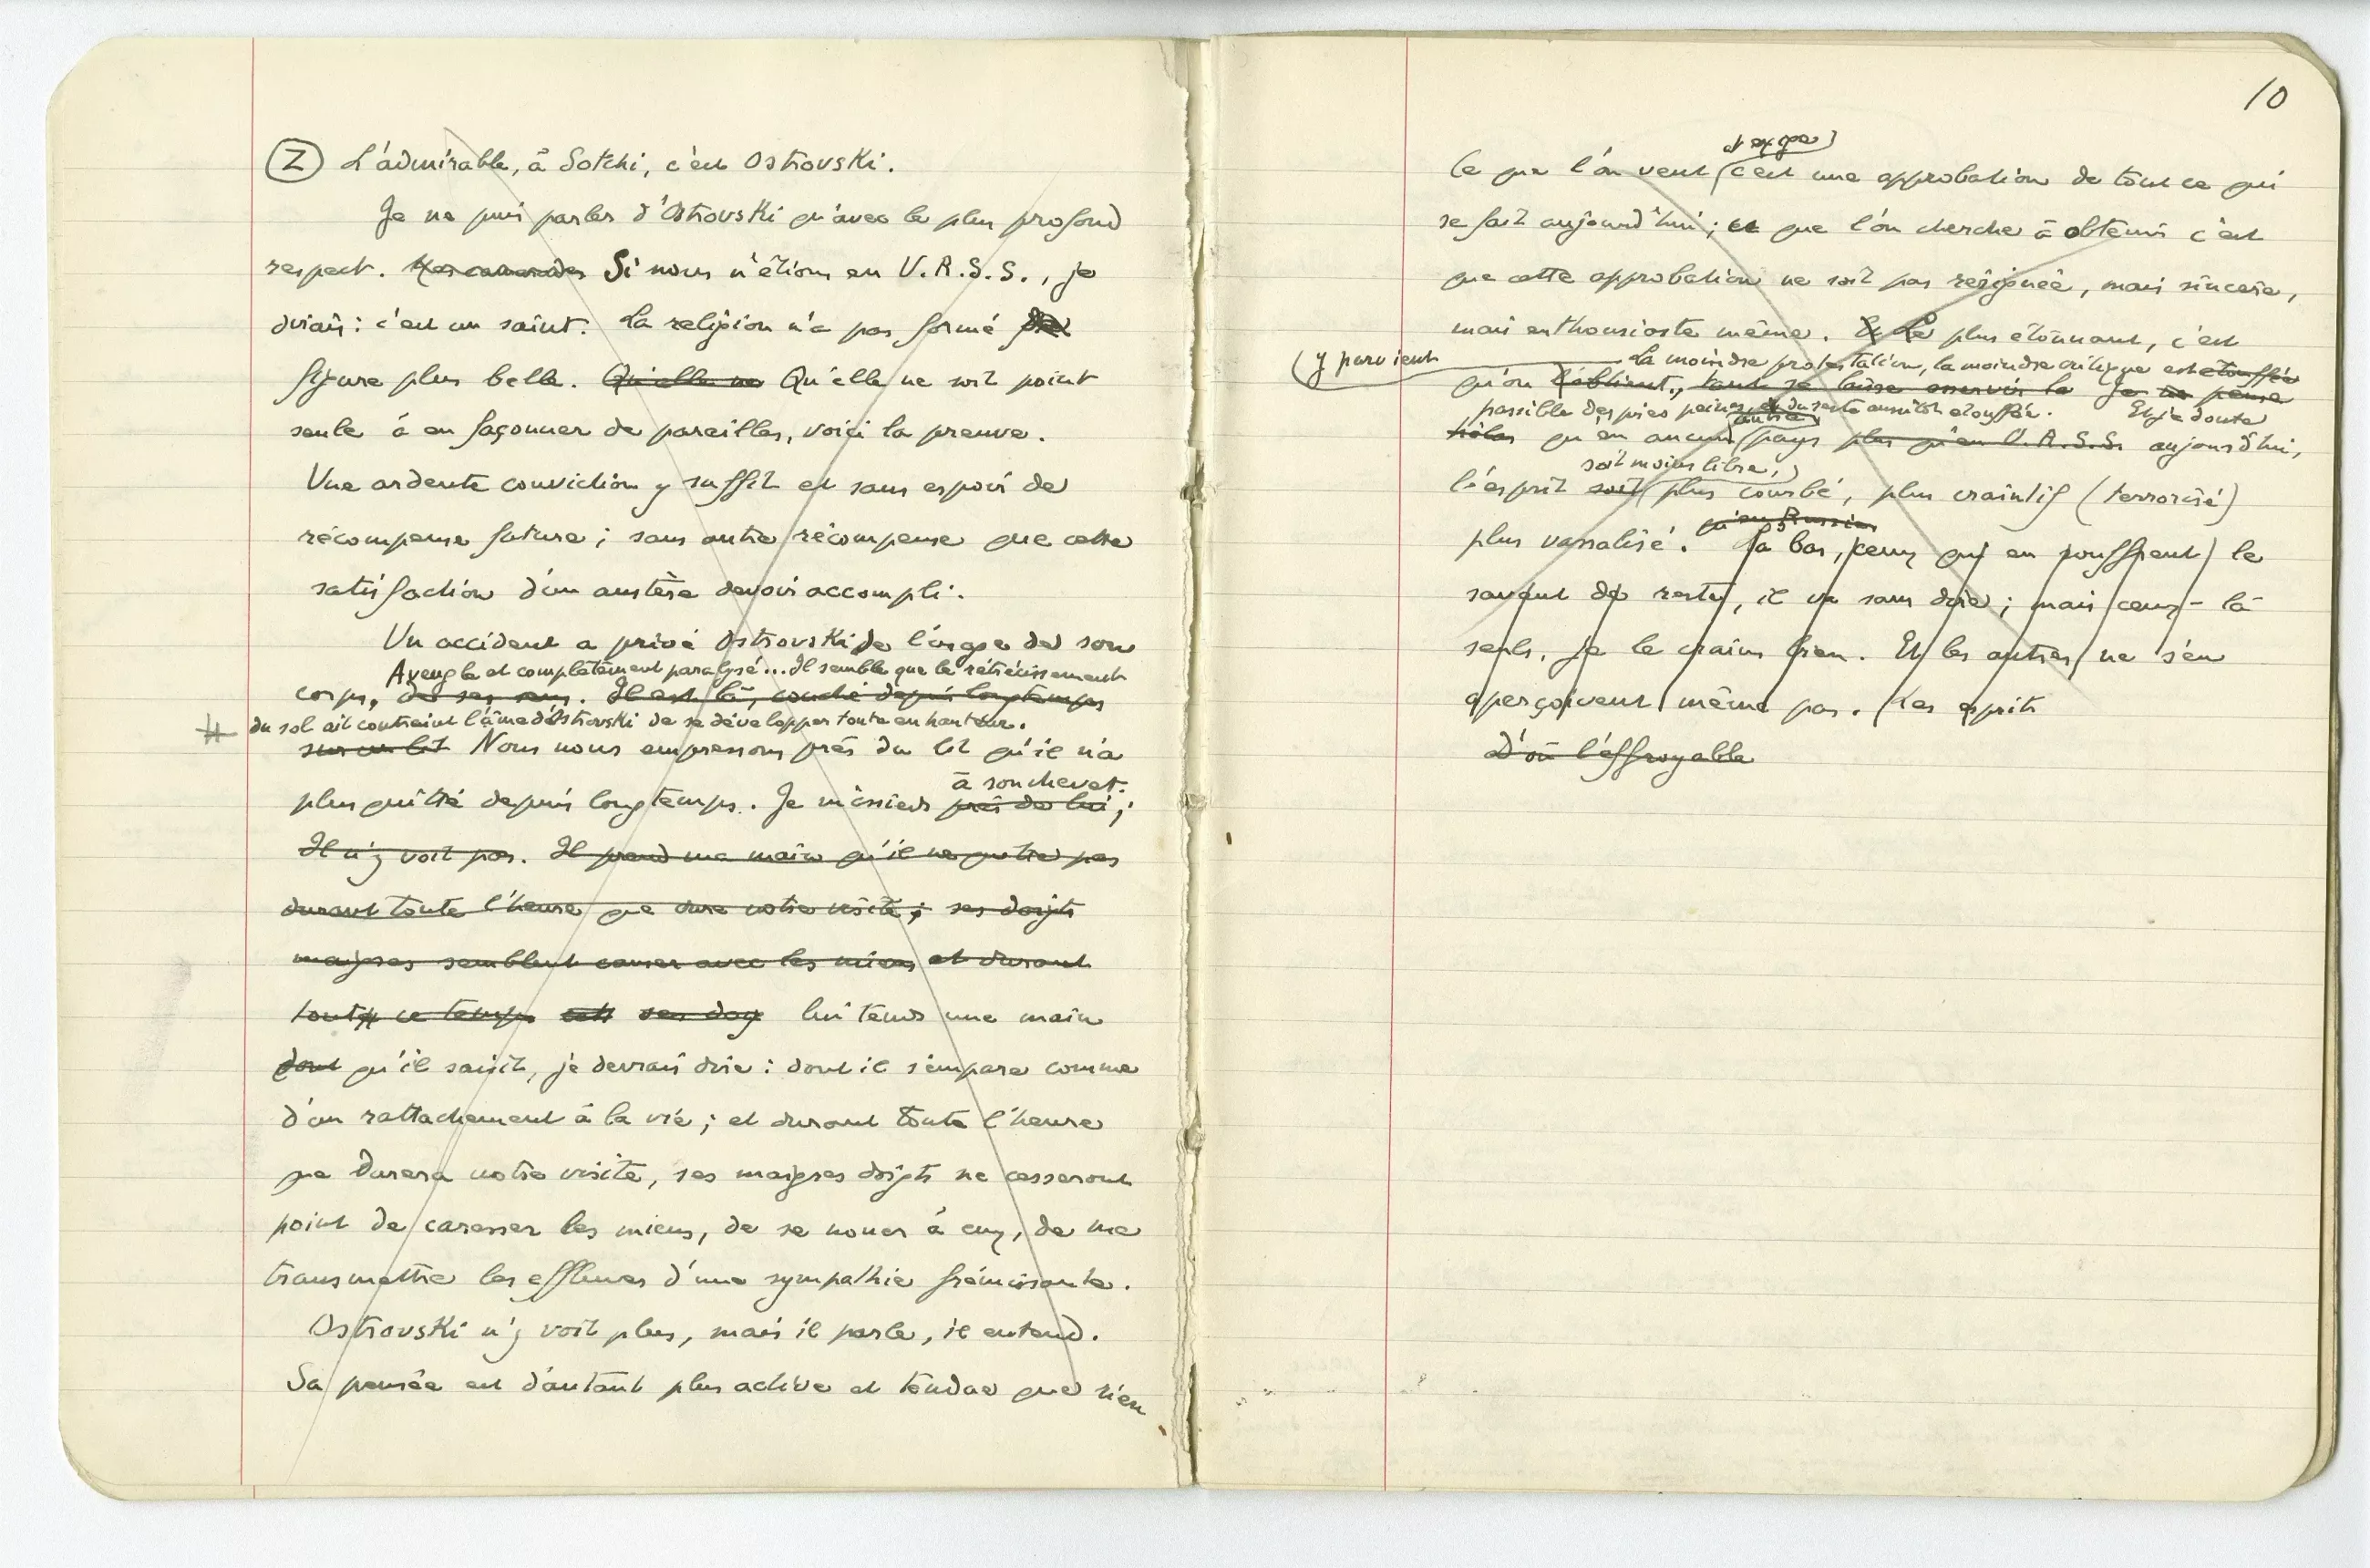 ② L'admirable, à Sotchi, c'est Ostrovski.
Je ne puis parler d'Ostrovski qu'avec le plus profond
respect. Si nous n'étions en U.R.S.S., je
dirais : c'est un saint. La religion n'a pas formé
figure plus belle. Qu'elle ne Qu'elle ne soit point
seule à en façonner de pareilles, voici la preuve.
Une ardente conviction y suffit et sans espoir de
récompense future ; sans autre récompense que cette
satisfaction d'un austère devoir accompli.
Un accident a privé Ostrovski de l'usage de son
Aveugle et complètement paralysé... Il semble que le rétrécissement
corps, de ses sens. Il est là, couché depuis longtemps
du sol ait contraint l'âme d'Ostrovski de se développer toute en hauteur.
sur un lit Nous nous empressons près du lit qu'il n'a
à son chevet.
plus quitté depuis longtemps. Je m'assieds près de lui ;
Il n'y voit pas. Il prend ma main qu'il ne quitte pas
durant toute l'heure que dure notre visite ; ses doigts
maigres semblent causer avec les miens et durant
tout ce temps ses doig lui tends une main
dont qu'il saisit, je devrais dire : dont il s'empare comme
d'un rattachement à la vie ; et durant toute l'heure
que durera notre visite, ses maigres doigts ne cesseront
point de caresser les miens, de se nouer à eux, de me
transmettre les effluves d'une sympathie frémissante.
Ostrovski n'y voit plus, mais il parle, il entend.
Sa pensée est d'autant plus active et tendue que rien
10
et exige
Ce que l'on veut c'est une approbation de tout ce qui
se fait aujourd'hui ; ce que l'on cherche à obtenir c'est
que cette approbation ne soit pas résignée, mais sincère,
mais enthousiaste même. Et Le plus étonnant, c'est
(y parvient La moindre protestation, la moindre critique est étouffée
qu'on l'obtient, tant se laisse asservir la Je ne pense
passible des pires peines, et du reste aussitôt étouffée. Et je doute
hélas qu'en aucun autre pays plus qu'en U.R.S.S. aujourd'hui,
soit moins libre,
l'esprit soit plus courbé, plus craintif (terrorisé)
qu'en Russie
plus vassalisé. Là bas, ceux qui en souffrent le
savent de reste, il va sans dire ; mais ceux-là
seuls, je le crains bien. Et les autres ne s'en
aperçoivent même pas. Les esprits
D'où l'effroyable